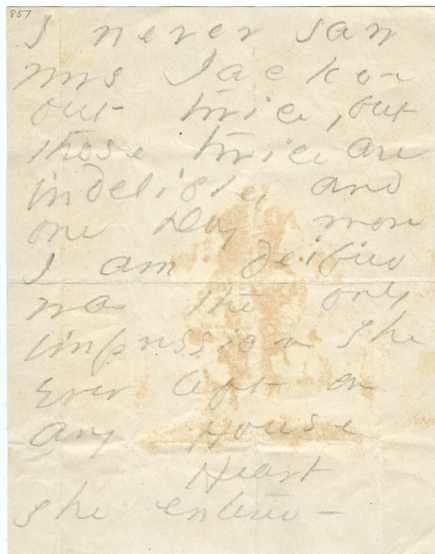 857
I never saw
Mrs Jackson
but twice, but
those twice are
indelible, and
one Day more
I am deified
was the only
impression she
ever left on
any House
Heart
she entered -